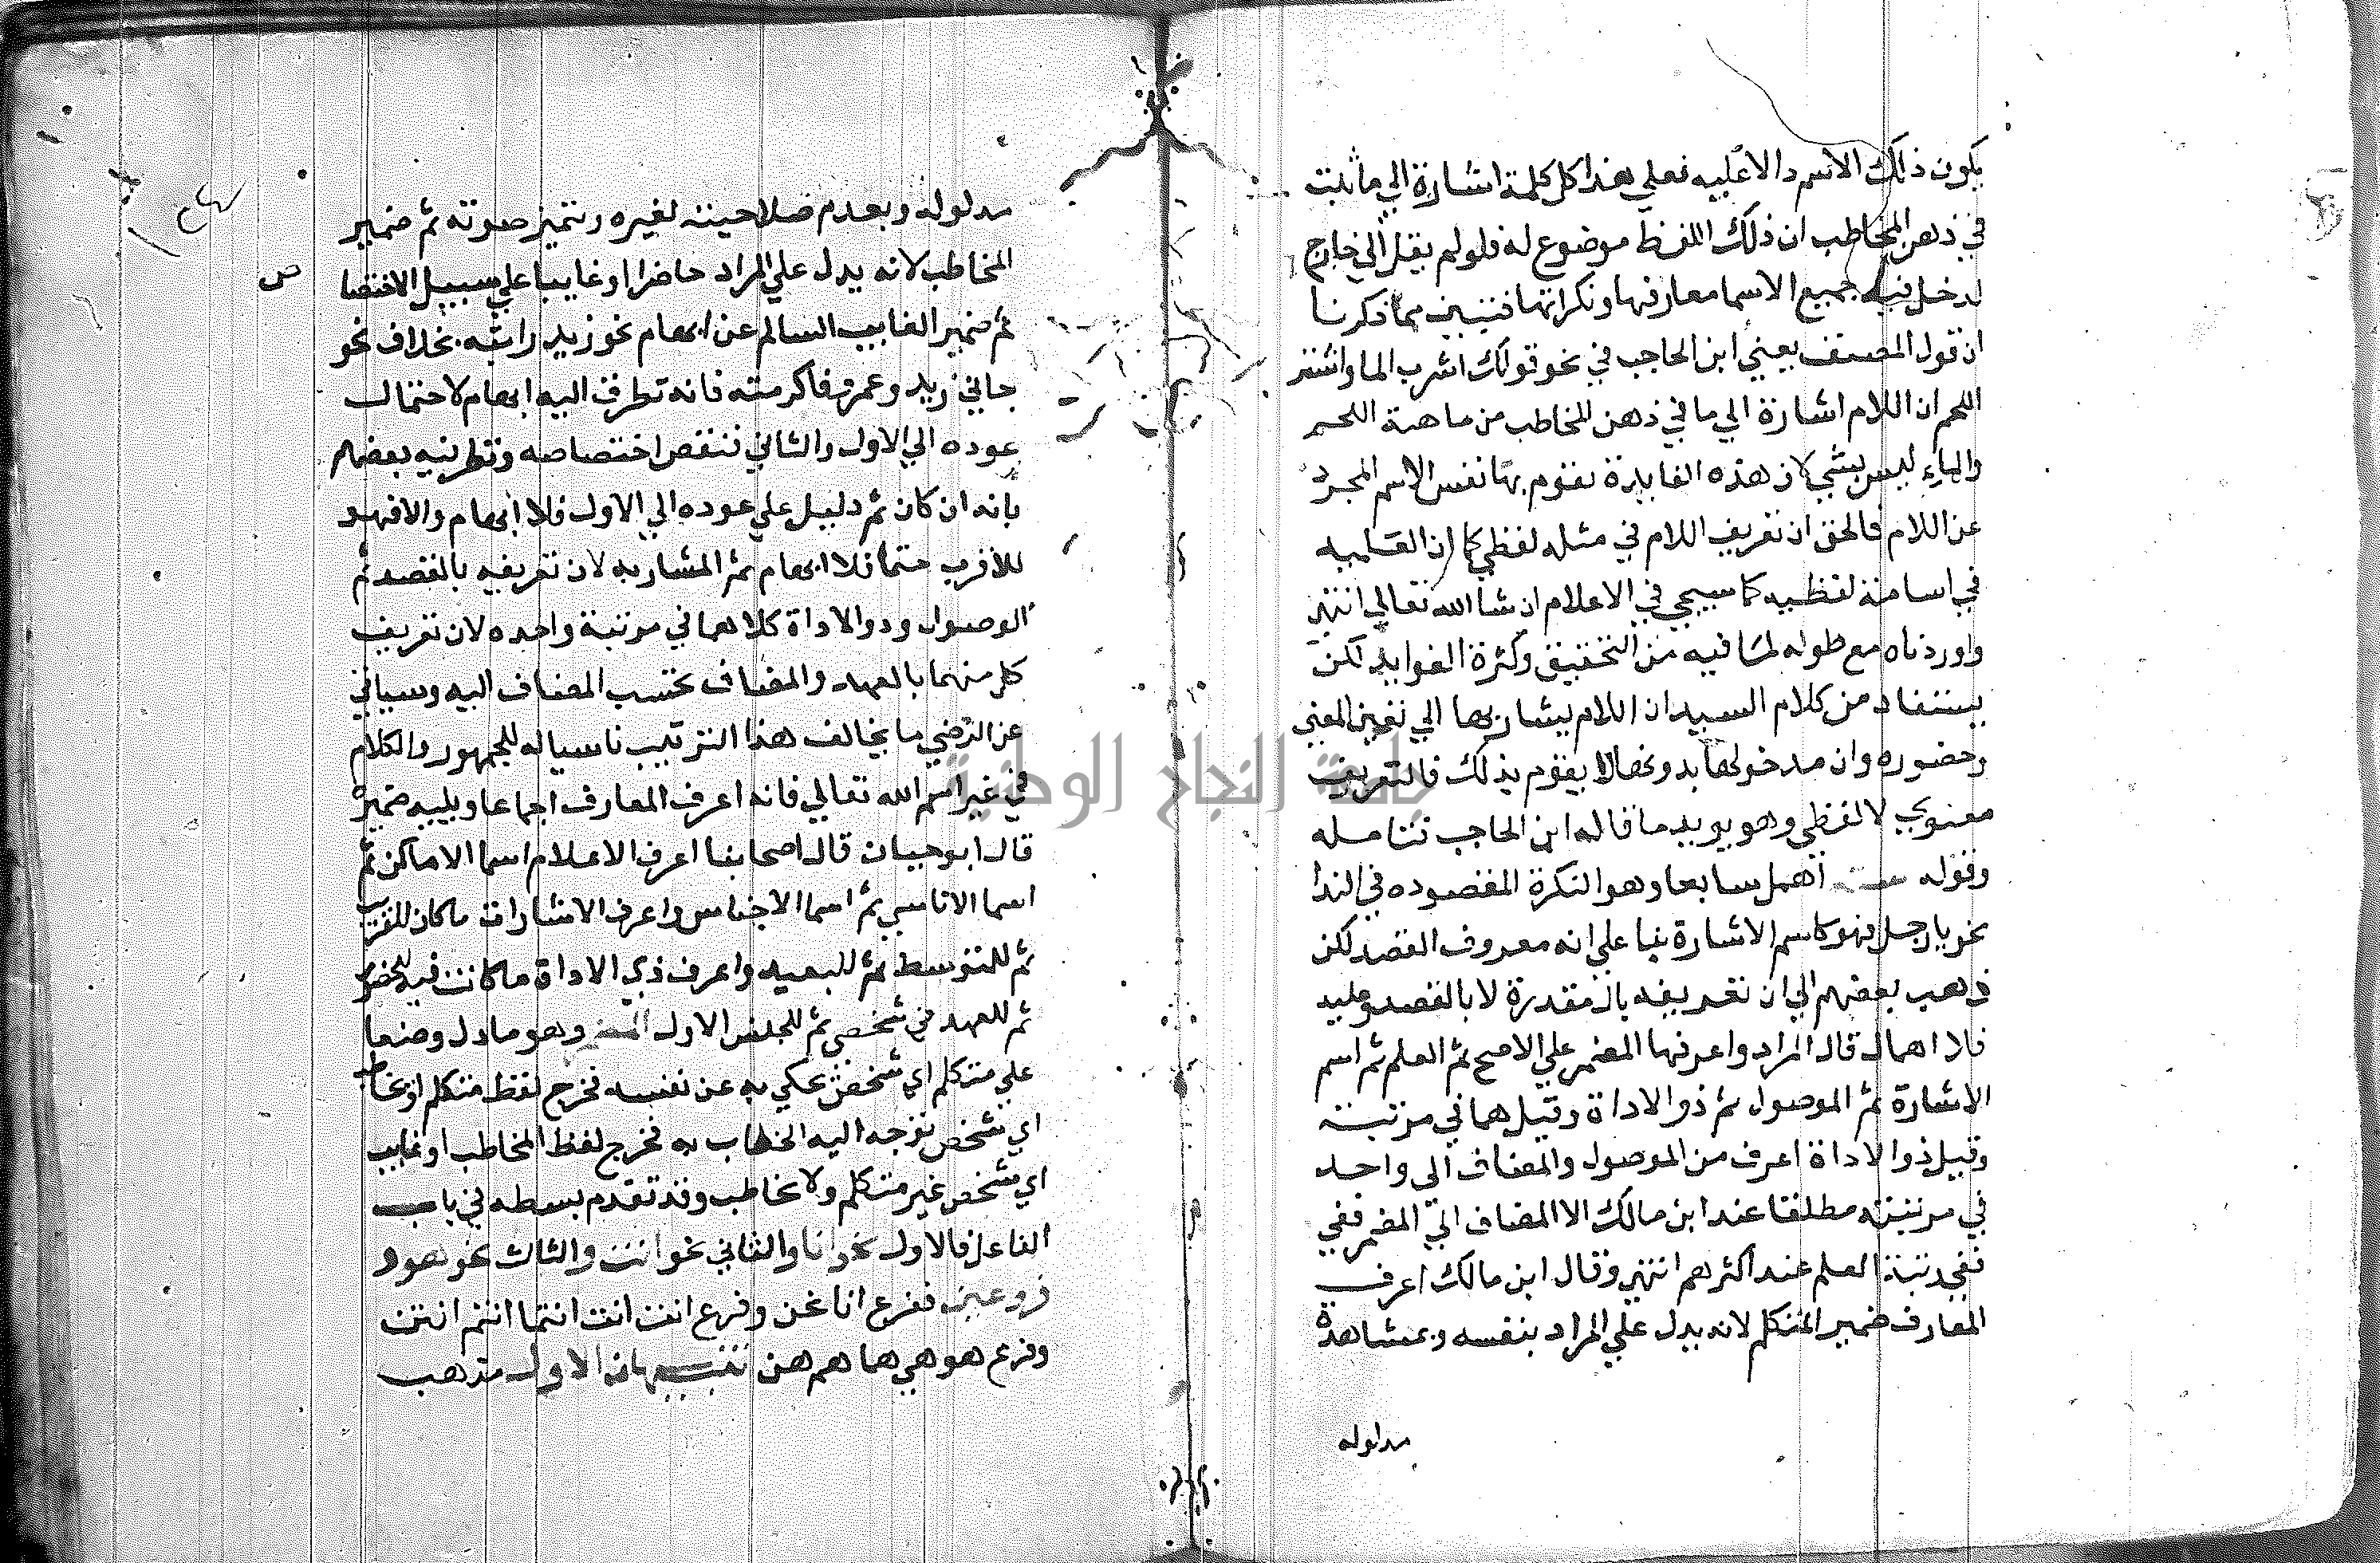 يكون ذلك الاسم دالا عليه فعلي هذا كل كلمة اشارة الي ما ثبت
في ذهن المخاطب ان ذلك اللفظ موضوع له فلو لم يقل الي خارج
لدخل فيه جميع الاسما معارفها ونكراتها فتبين مما ذكرنا
ان قول المصنف يعني ابن الحاجب في نحو قولك اشرب الما واشتر
اللحم ان اللام اشارة الي ما في ذهن المخاطب من ماهية اللحم
والماء ليس بشي لان هذه الفايدة يقوم بها نفس الاسم المجرد
عن اللام فالحق ان تعريف اللام في مثله لفظي كما ان العلميه
في اسامة لفظيه كما سيجي في الاعلام ان شا الله تعالي انتهي
واوردناه مع طوله لما فيه من التحقيق وكثرة الفوايد لكن
يستفاد من كلام السيد ان اللام يشار بها الي تعين المعني
وحضوره وان مدخولها بدونها لا يقوم بذلك فالتعريف
معنوي لا لفظي وهو يويد ما قاله ابن الحاجب تتامله
وقوله اهمل سابعا وهو النكرة المقصوده في الندا
نحو يا رجل فهو كاسم الاشارة بنا علي انه معروف القصد لكن
ذهب بعضهم الي ان تعريفه بال مقدرة لا بالقصد وعليه
فلا اهمال قال المراد واعرفها المضمر علي الاصح ثم العلم ثم اسم
الاشارة ثم الموصول ثم ذو الاداة وقيل هما في مرتبة
وقيل ذو الاداة اعرف من الموصول والمضاف الي واحد
في مرتبته مطلقا عند ابن مالك الا المضاف الي المضمر ففي
ففي رتبة العلم عند اكثرهم انتهي وقال ابن مالك اعرف
المعارف ضمير المتكلم لانه يدل علي المراد بنفسه وبمشاهدة
مدلوله
مدلوله وبعدم صلاحيته لغيره وبتميز صوته ثم ضمير
المخاطب لانه يدل علي المراد حاضرا او غايبا علي سبيل الاختصا
ص
ثم ضمير الغايب السالم عن ابهام نحو زيد رايته بخلاف نحو
جاني زيد وعمرو فاكرمته فانه تطرق اليه ابهام لاحتمال
عوده الي الاول والثاني فنقص اختصاصه ونظر فيه بعضهم
بانه ان كان ثم دليل علي عوده الي الاول فلا ابهام والا فهو
للاقرب حتما فلا ابهام ثم المشار به لان تعريفه بالقصد ثم
الموصول وذو الاداة كلاهما في مرتبة واحده لان تعريف
كل منهما بالعهد والمضاف بحسب المضاف اليه وسياتي
عن الرضي ما يخالف هذا الترتيب ناسيا له للجمهور والكلام
في غير اسم الله تعالي فانه اعرف المعارف اجماعا ويليه ضميره
قال ابو حيان قال اصحابنا اعرف الاعلام اسما الاماكن ثم
اسما الاناسي ثم اسما الاجناس واعرف الاشارات ما كان للقريب
ثم للمتوسط ثم للبعيد واعرف ذي الاداة ما كانت فيه للحضور
ثم للعهد في شخص ثم للجنس الاول المضمر وهو ما دل وضعا
علي متكلم اي شخص يحكي به عن نفسه فخرج لفظ متكلم او مخاطب
اي شخص توجه اليه الخطاب به فخرج لفظ المخاطب او غايب
اي شخص غير متكلم ولا مخاطب وقد تقدم بسطه في باب
الفاعل فالاول نحو انا والثاني نحو انت والثالث نحو هو و
فروعهن ففرع انا نحن وفرع انت انت انتما انتم انتن
وفرع هو هي هما هم هن الاول مذهب
جامعة النجاح الوطنية